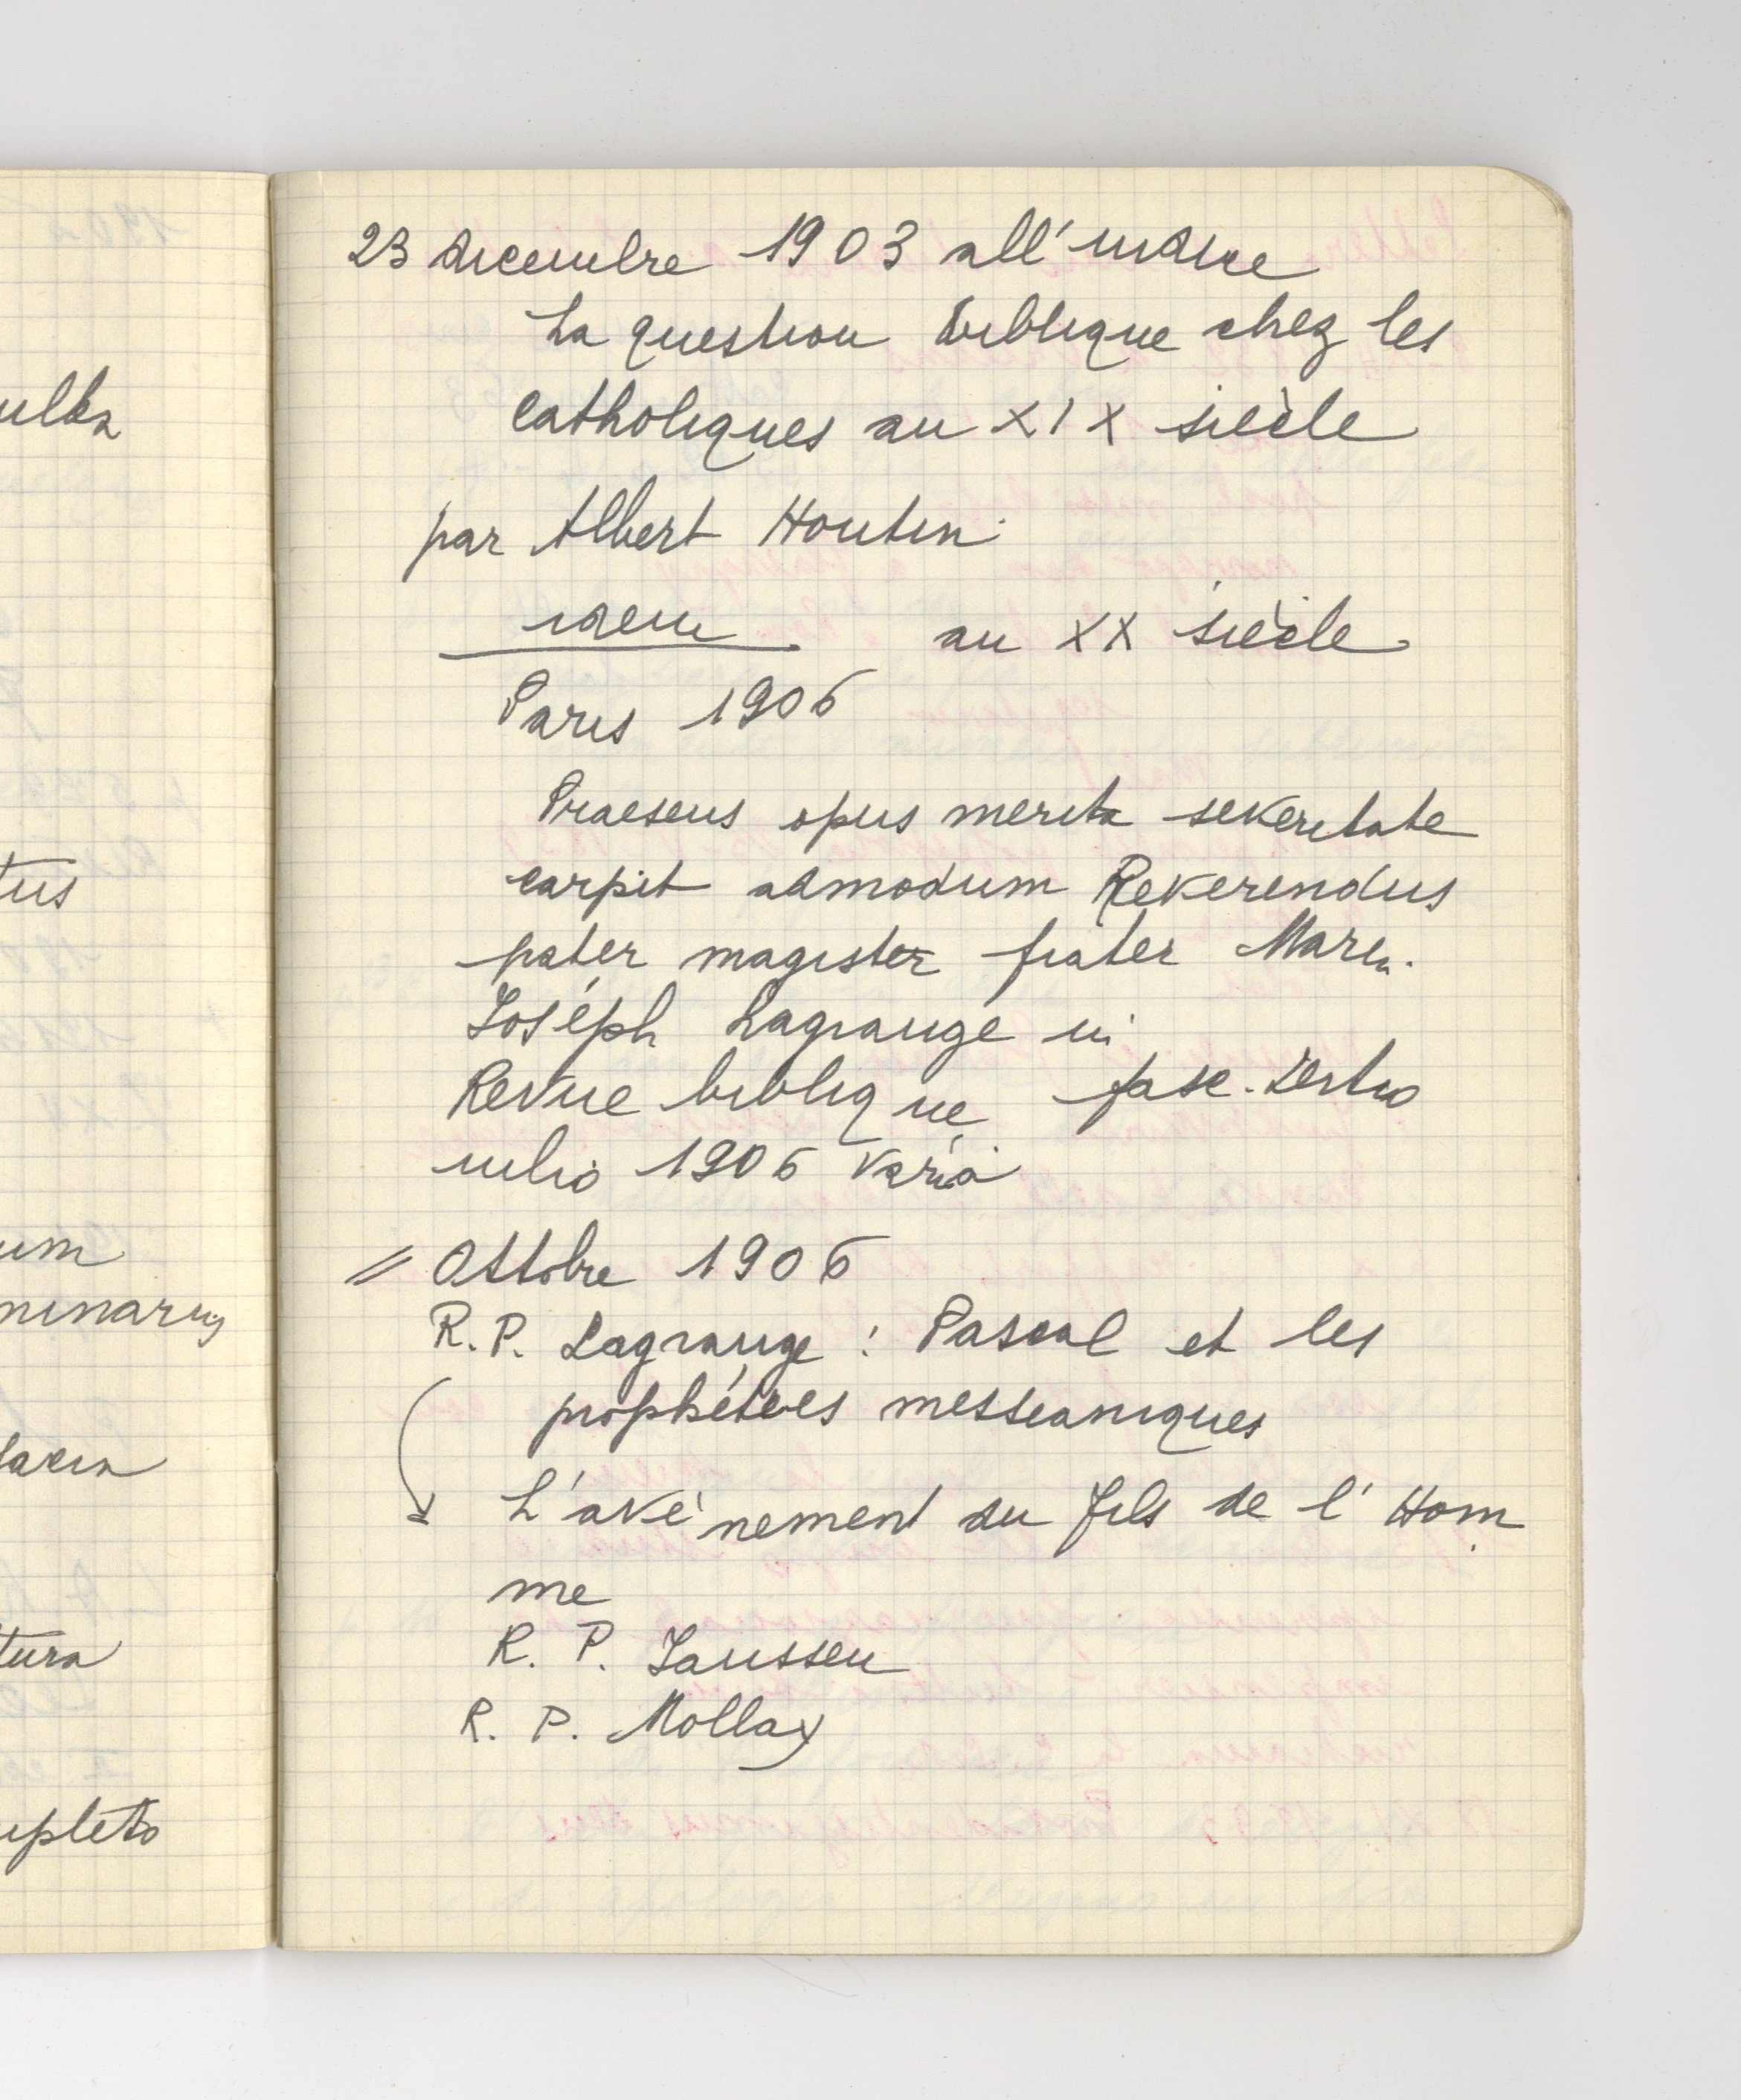 23 dicembre 1903 all'indice
La question biblique chez les
catholiques au XIX siècle
par Albert Houtin
idem au XX siècle
Paris 1906
Praesens opus merita severitate
carpit admodum Reverendus
pater magister frater Maria
Joséph Lagrange in
Revue biblique fasc. tertio
iulio 1906 Varia
// Ottobre 1906
R.P. Lagrange : Pascal et les
prophéties messianiques
L'avènement du fils de l'Hom
me
R. P. Janssen
R. P. Mollay
ulla
tus
um
minariis
tura
mpleto